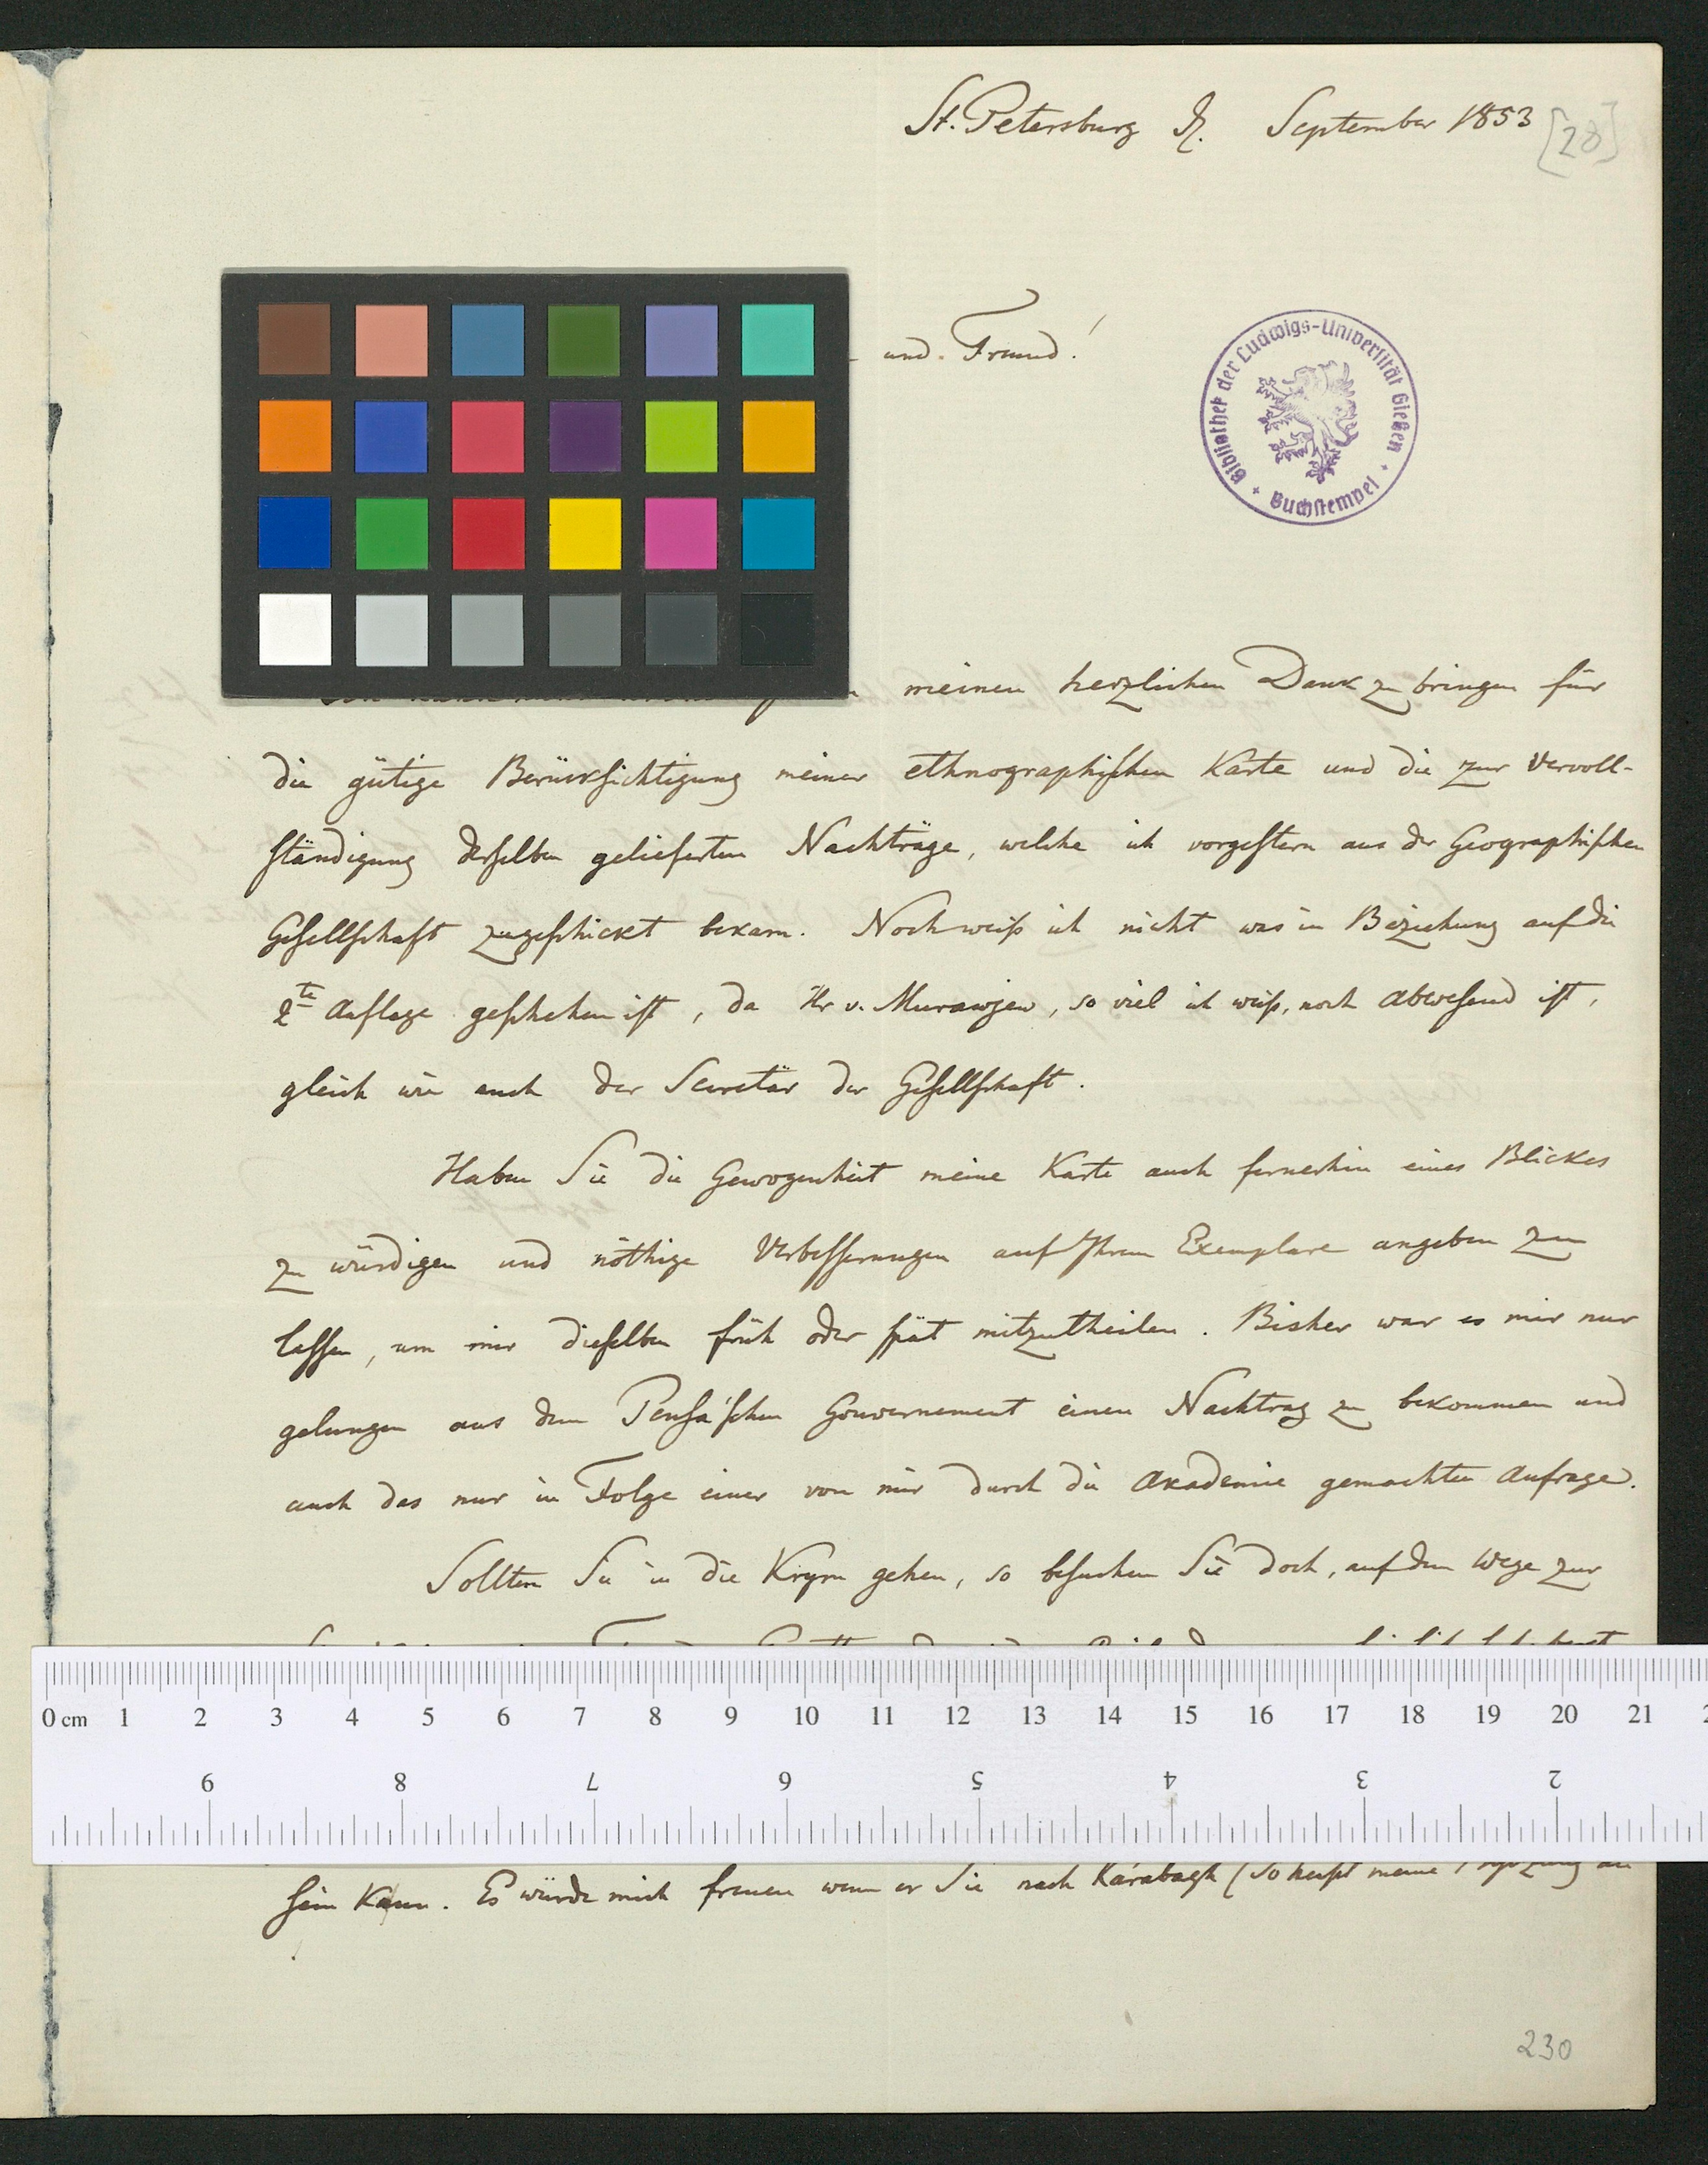 St. Petersburg d. September 1853
[28]
und Freund!
Bibliothek der Ludwigs-Universität Gießen + Buchstempel +
meinen herzlichen Dank zu bringen für
die gütige Berücksichtigung meiner ethnographischen Karte und die zur Vervoll-
ständigung derselben gelieferten Nachträge, welche ich vorgestern aus der Geographischen
Gesellschaft zugeschickt bekam. Noch weiß ich nicht was in Beziehung auf die
2te Auflage geschehen ist, da Hr v. Murawjew, so viel ich weiß, noch abwesend ist,
gleich wie auch der Secretär der Gesellschaft.
Haben Sie die Gewogenheit meine Karte auch fernerhin eines Blickes
zu würdigen und nöthige Verbesserungen auf Ihrem Exemplare angeben zu
lassen, um mir dieselben früh oder spät mitzutheilen. Bisher war es mir nur
gelungen aus dem Pensa'schen Gouvernement einen Nachtrag zu bekommen und
auch das nur in Folge einer von mir durch die Akademie gemachten Anfrage.
Sollten Sie in die Krym gehen, so besuchen Sie doch, auf dem Wege zur
0 cm 1 2 3 4 5 6 7 8 9 10 11 12 13 14 15 16 17 18 19 20 21
9 8 7 6 5 4 3 2
sein kann. Es würde mich freuen wenn er Sie nach Karabagh (so heißt meine
230